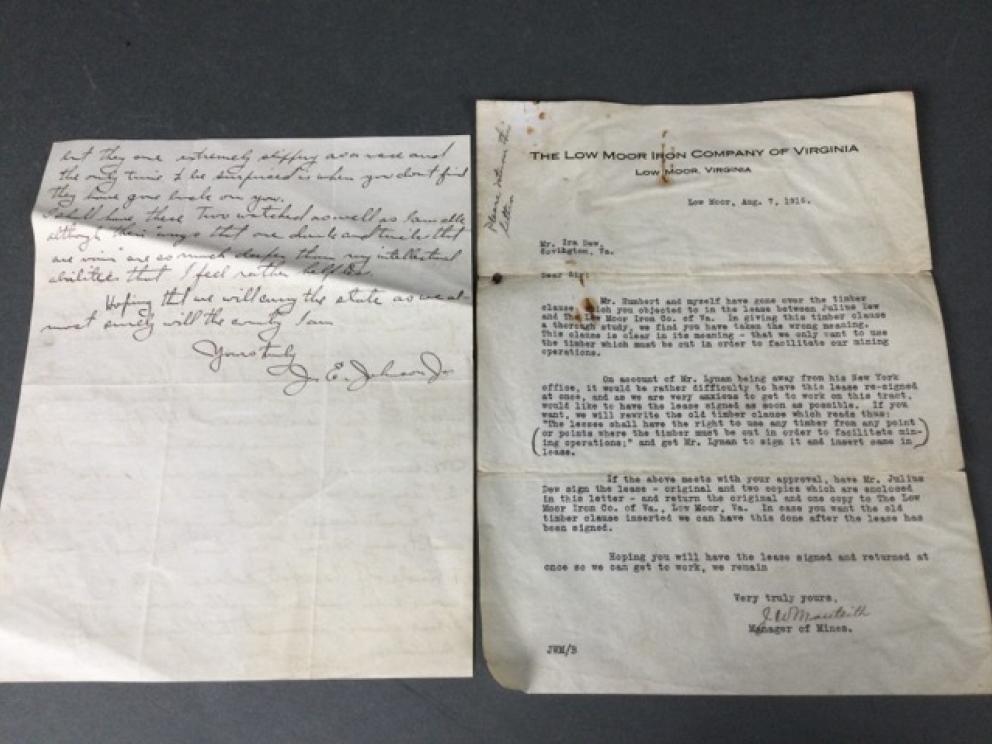 but they are extremely slippery as a race and
the only time to be surprised is when you don't find
they have gone back on you.
I shall have these two watched as well as I am able
although their ways that are dark and tricks that
are vain are so much deeper than my intellectual
abilities that I feel rather
Hoping that we will carry the state as we al-
most surely will the county I am
Yours truly
J. E. Johnson Jr
Please return this
letter
THE LOW MOOR IRON COMPANY OF VIRGINIA
LOW MOOR, VIRGINIA
Low Moor, Aug. 7, 1916.
Mr. Ira Dew,
Covington, Va.
Dear Sir:
Mr. Humbert and myself have gone over the timber
clause which you objected to in the lease between Julius Dew
and The Low Moor Iron Co. of Va. In giving this timber clause
a thorough study, we find you have taken the wrong meaning.
This clause is clear in its meaning - that we only want to use
the timber which must be cut in order to facilitate our mining
operations.
On account of Mr. Lyman being away from his New York
office, it would be rather difficulty to have this lease re-signed
at once, and as we are very anxious to get to work on this tract,
would like to have the lease signed as soon as possible. If you
want, we will rewrite the old timber clause which reads thus:
"The lessee shall have the right to use any timber from any point
or points where the timber must be cut in order to facilitate min-
ing operations;" and get Mr. Lyman to sign it and insert same in
lease.
If the above meets with your approval, have Mr. Julius
Dew sign the lease - original and two copies which are enclosed
in this letter - and return the original and one copy to The Low
Moor Iron Co. of Va., Low Moor, Va. In case you want the old
timber clause inserted we can have this done after the lease has
been signed.
Hoping you will have the lease signed and returned at
once so we can get to work, we remain
Very truly yours,
J W Monteith
Manager of Mines.
JWM/B